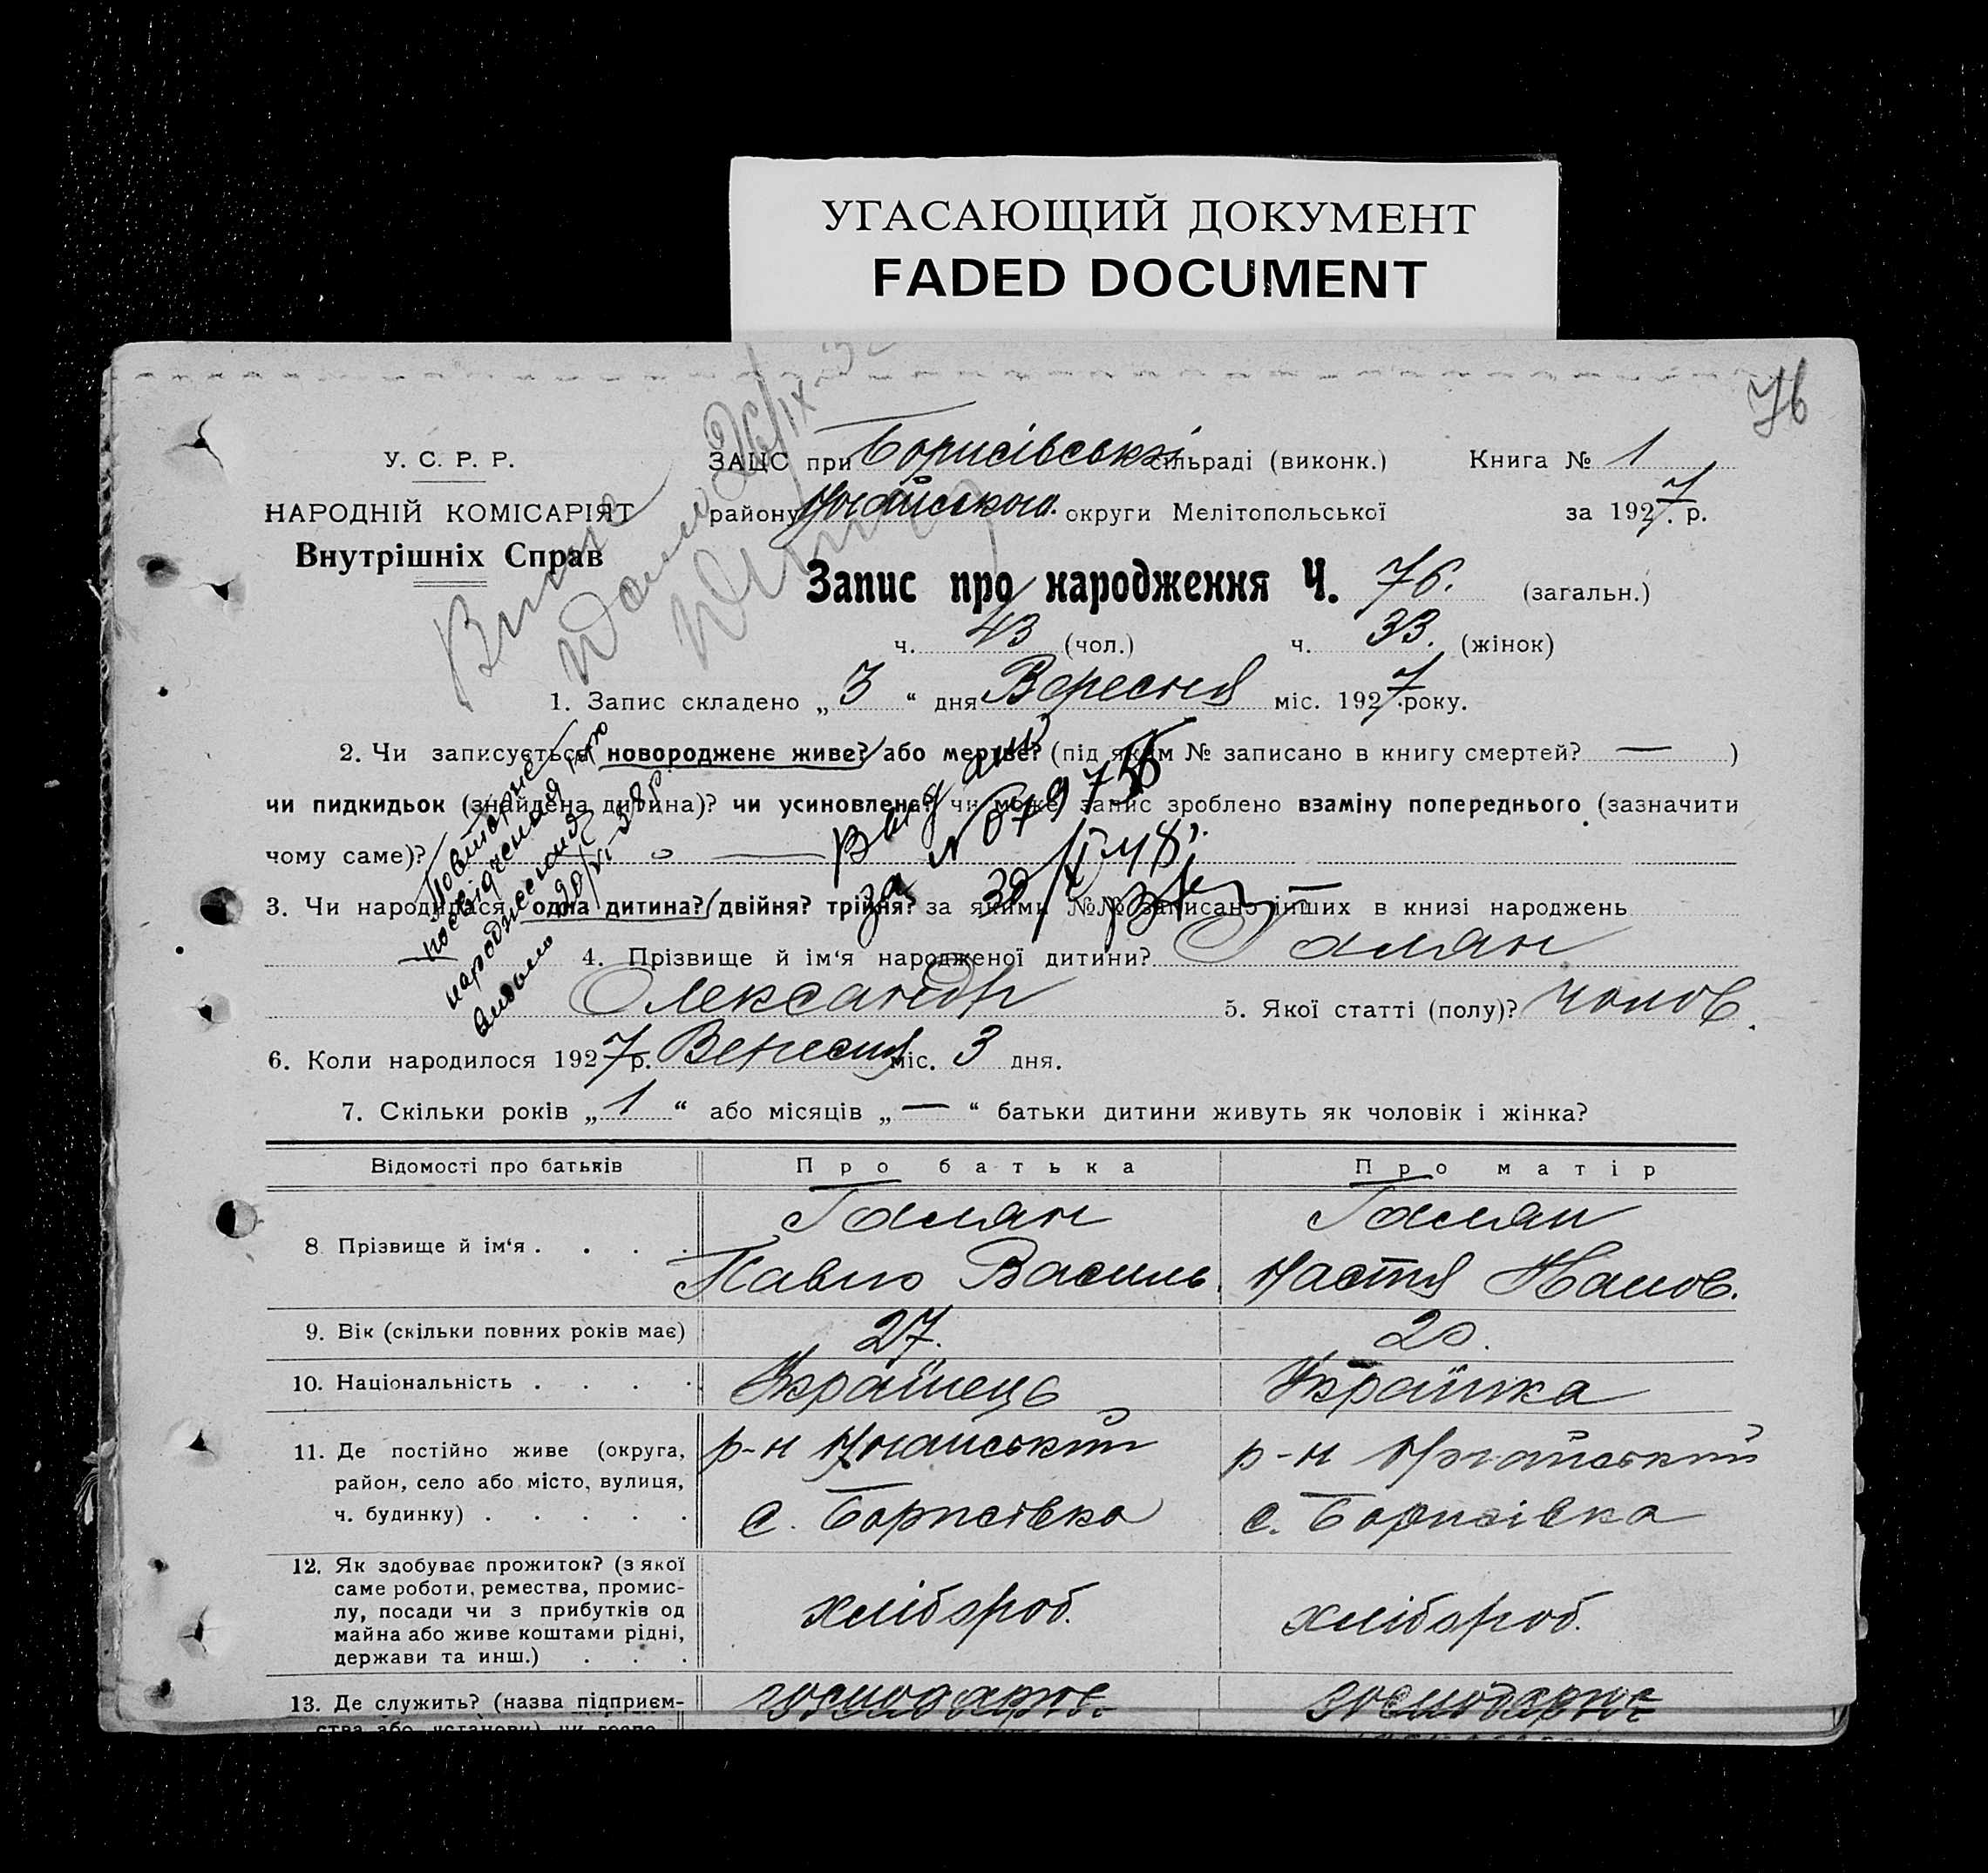 УГАСАЮЩИЙ ДОКУМЕНТ
FADED DOCUMENT
76
У. С. Р. Р.
НАРОДНІЙ КОМІСАРІЯТ
Внутрішніх Справ
ЗАЦС при Борисівській сільраді (виконк.) Книга № 1
району Ногайського округи Мелітопольської за 1927 р.
Запис про народження Ч. 76. (загальн.)
ч. 43 (чол.) ч. 33. (жінок)
1. Запис складено „ 3 “ дня Вересня міс. 1927 року.
2. Чи записується новороджене живе? або мертве? (під яким № записано в книгу смертей? — )
чи пидкидьок (знайдена дитина)? чи усиновлена? чи може запис зроблено взаміну попереднього (зазначити
чому саме)?
Повторне
посвідчення
народження
видано
3. Чи народилася одна дитина? двійня? трійня? за якими №№ записано інших в книзі народжень —
4. Прізвище й ім‘я народженої дитини? Галян
Олександр 5. Якої статті (полу)? чолов.
6. Коли народилося 1927 р. Вересня міс. 3 дня.
7. Скільки років „ 1 “ або місяців „ — “ батьки дитини живуть як чоловік і жінка?
Відомості про батьків Про батька Про матір
8 Прізвище й ім‘я . . . . Галян Павло Василь. Галян Настя Іванов.
9. Вік (скільки повних років має) 27. 20.
10. Національність . . . . Українець Українка
11. Де постійно живе (округа, р-н Ногайський р-н Ногайський
район, село або місто, вулиця,
ч. будинку) . . . . . с. Борисівка с. Борисівка
12. Як здобуває прожиток? (з якої
саме роботи, ремества, промис-
лу, посади чи з прибутків од хлібороб. хлібороб.
майна або живе коштами рідні,
держави та инш.) . . .
13. Де служить? (назва підприєм- господарює господарює
ства або установи) чи госпо-